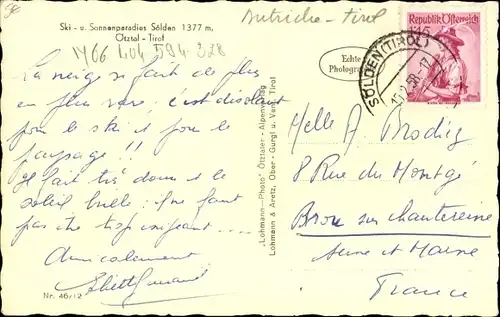 Ski- u. Sonnenparadies Sölden 1377 m,
Ötztal - Tirol
Autriche - Tirol
La neige se fait de plus
en plus rare : c'est désolant
pour le ski et pour le
paysage !!
Il fait très doux et le
soleil brille : il ne faut
pas être trop exigeant ----
Amicalement
Nr. 46/12
"Lohmann-Photo" Ötztaler - Alpenverlag
Lohmann & Aretz, Ober - Gurgl u. Vent, Tirol
Echte
Photographie
Republik Österreich
SÖLDEN (TIROL)
Melle A. Brodig
8 Rue du Montgé
Brou sur chantereine
Seine et Marne
France